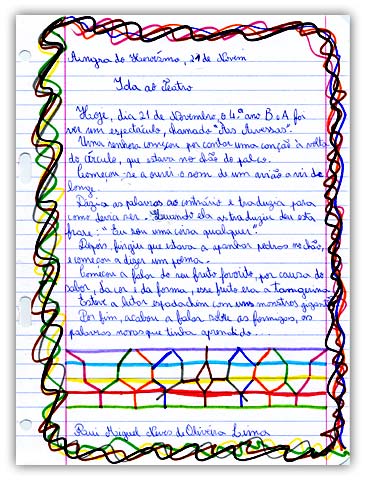 Angra do Heroísmo, 21 de Novem
Ida ao Teatro
Hoje, dia 21 de Novembro, o 4.º ano B e A foi
ver um espectáculo, chamado "Às Avessas".
Uma senhora começou por contar uma canção à volta
do círculo, que estava no chão do palco.
Começou-se a ouvir o som de um avião a vir de
longe.
Dizia as palavras ao contrário e traduzia para
como devia ser. Quando ela a traduziu deu esta
frase: "Eu sou uma coisa qualquer."
Depois, fingiu que estava a apanhar pedras no chão,
e começou a dizer um poema.
Começou a falar do seu fruto favorito, por causa do
sabor, da cor e da forma, esse fruto era a tamgerina.
Esteve a lutar espadachim com uns monstros gigant
Por fim, acabou a falar sobre as formigas, as
palavras novas que tinha aprendido...
Rui Miguel Neves de Oliveira Lima